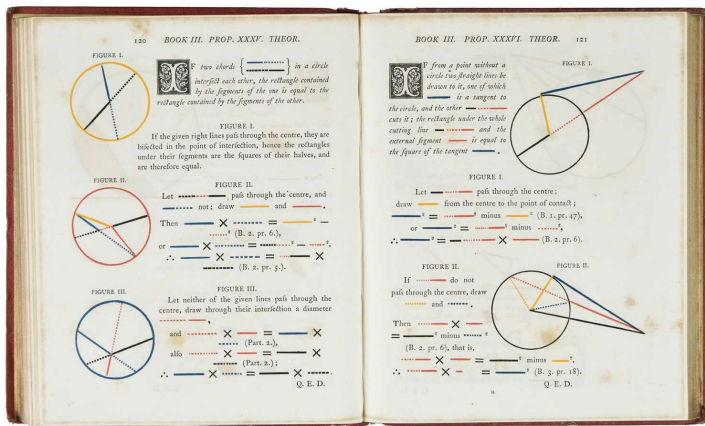 120 BOOK III. PROP. XXXV. THEOR.
FIGURE I.
IF two chords { } in a circle
interſect each other, the rectangle contained
by the ſegments of the one is equal to the
rectangle contained by the ſegments of the other.
FIGURE I.
If the given right lines paſs through the centre, they are
biſected in the point of interſection, hence the rectangles
under their ſegments are the ſquares of their halves, and
are therefore equal.
FIGURE II.
FIGURE II.
Let paſs through the centre, and
not; draw and .
Then × = ² −
² (B. 2. pr. 6.),
or × = ² − ².
∴ × = ×
(B. 2. pr. 5.).
FIGURE III.
FIGURE III.
Let neither of the given lines paſs through the
centre, draw through their interſection a diameter
,
and × = ×
(Part. 2.),
alſo × = ×
(Part. 2.);
∴ × = × .
Q. E. D.
BOOK III. PROP. XXXVI. THEOR. 121
FIGURE I.
IF from a point without a
circle two ſtraight lines be
drawn to it, one of which
is a tangent to
the circle, and the other
cuts it; the rectangle under the whole
cutting line and the
external ſegment is equal to
the ſquare of the tangent .
FIGURE I.
Let paſs through the centre;
draw from the centre to the point of contact;
² = ² minus ² (B. 1. pr. 47),
or ² = ² minus ²,
∴ ² = × (B. 2. pr. 6).
FIGURE II.
FIGURE II.
If do not
paſs through the centre, draw
and .
Then ×
= ² minus ²
(B. 2. pr. 6), that is,
× = ² minus ².
∴ × = ² (B. 3. pr. 18).
Q. E. D.